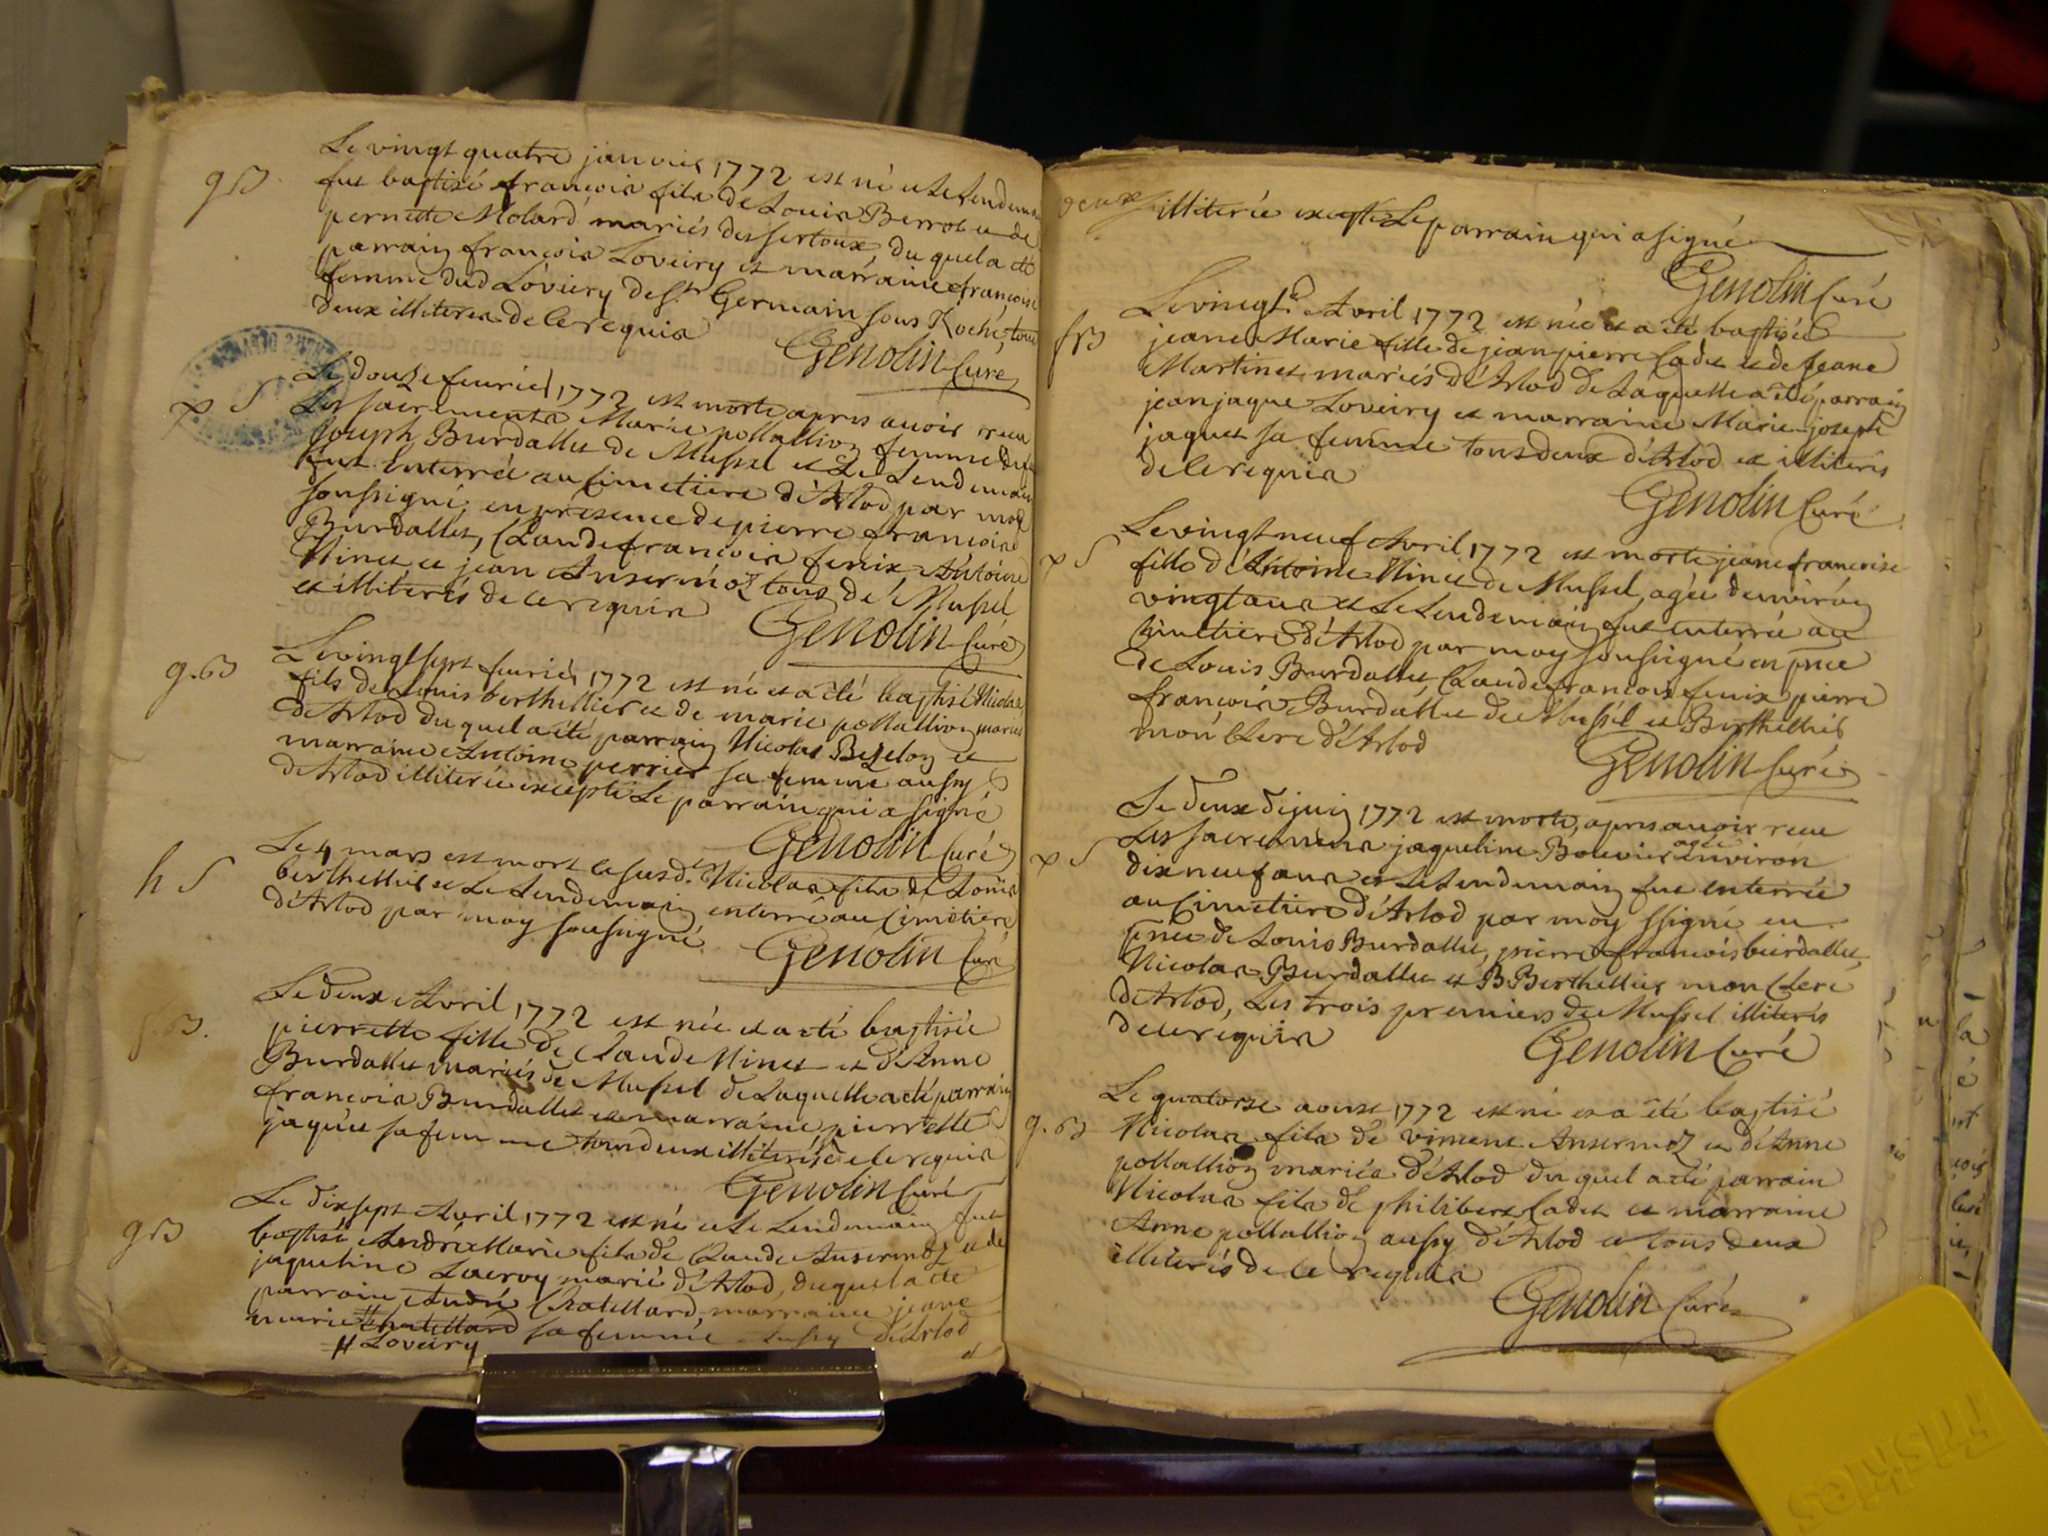 gB
Le vingt quatre janvier 1772 est né et le lendemain
fut baptisé françois fils de Louis Berrot et de
pernette Molard mariés des sertoux du quel a eté
parrain françois Loveiry et marraine françoise
femme dud Loveiry de St Germain sous Roche tous
deux illiteres de ce requis
Genolin Curé
Le douze feuvrier 1772 est morte apres avoir receu
Les sacrements Marie pollallion femme de
Joseph Burdallet de Mussel et Le Lendemain
fut Enterrée au Cimetiere d'Arlod par moy
soussigné en presence de pierre françois
Burdallet, Claude françois fenix Antoine
Ninet et jean Ansermoz tous de Mussel
et illiterés de ce requis
Genolin Curé
g.B
Le vingt sept feuvrier 1772 est né et a eté baptisé Nicolas
fils de Louis berthellier et de marie pollallion mariés
d'Arlod du quel a eté parrain Nicolas Bezelon et
marraine Antoine perrier sa femme aussy
d'Arlod illiterée excepté Le parrain qui a signé
Genolin Curé
h S
Le 4 mars est mort le susdt Nicolas fils de Louis
berthellier et Le Lendemain enterré au Cimetiere
d'Arlod par moy soussigné
Genolin Curé
f.B.
Le deux Avril 1772 est née et a eté baptisée
pierrette fille de Claude Ninet et d'Anne
Burdallet mariés de Mussel de Laquelle a eté parrain
françois Burdallet et marraine pierrette
jaquet sa femme tous deux illiterés de ce requis
Genolin Curé
gB
Le dix sept Avril 1772 est né et Le Lendemain fut
baptisé André Marie fils de Claude Ansermoz et de
jaqueline Lacroy mariés d'Arlod, duquel a eté
parrain André Chatellard, marraine jeane
marie chatellard sa femme aussy d'Arlod
# Loveiry
et
deux illiterée excepté Le parrain qui a signé
Genolin Curé
fB
Le vingt Avril 1772 est née et a eté baptisée
jeane Marie fille de jean pierre Cadet et de Jeane
Martinet mariés d'Arlod de Laquelle a eté parrain
jean jaque Loveiry et marraine Marie joseph
jaquet sa femme tous deux d'Arlod et illiterés
de ce requis
Genolin Curé
Le vingt neuf Avril 1772 est morte jeane françoise
fille d'Antoine Ninet de Mussel, agée d'environ
vingt ans et Le Lendemain fut enterrée au
Cimetiere d'Arlod par moy soussigné en pnce
de Louis Burdallet Claude françois fenix pierre
françois Burdallet de Mussel et Berthellier
mon Clerc d'Arlod
Genolin Curé
Le deux de juin 1772 est morte, apres avoir receu
Les sacremens jaqueline Bouvier agée Environ
dix neuf ans et Le Lendemain fut enterrée
au Cimetiere d'Arlod par moy ssigné en
pnce de Louis Burdallet, pierre françois burdallet,
Nicolas Burdallet et B Berthellier mon Clerc
d'Arlod, Les trois premiers de Mussel illiterés
de ce requis
Genolin Curé
g.B
Le quatorze aoust 1772 est né et a eté baptisé
Nicolas fils de vincent Ansermoz et d'Anne
pollallion mariés d'Arlod du quel a eté parrain
Nicolas fils de philibert Cadet et marraine
Anne pollallion aussy d'Arlod et tous deux
illiterés de ce requis
Genolin Curé
Fiskars